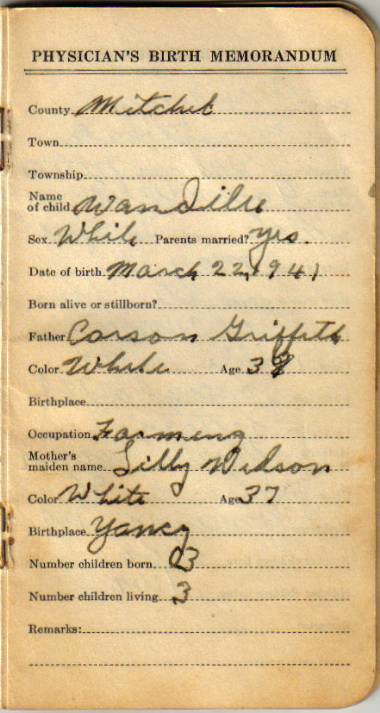 PHYSICIAN'S BIRTH MEMORANDUM
County Mitchel
Town
Township
Name of child Wan Dilu
Sex While Parents married? yes.
Date of birth March 22, 1941
Born alive or stillborn?
Father Carson Griffith
Color White Age 39
Birthplace
Occupation Farmeng
Mother's maiden name Lilly Widson
Color White Age 37
Birthplace Yancy
Number children born 03
Number children living 3
Remarks: